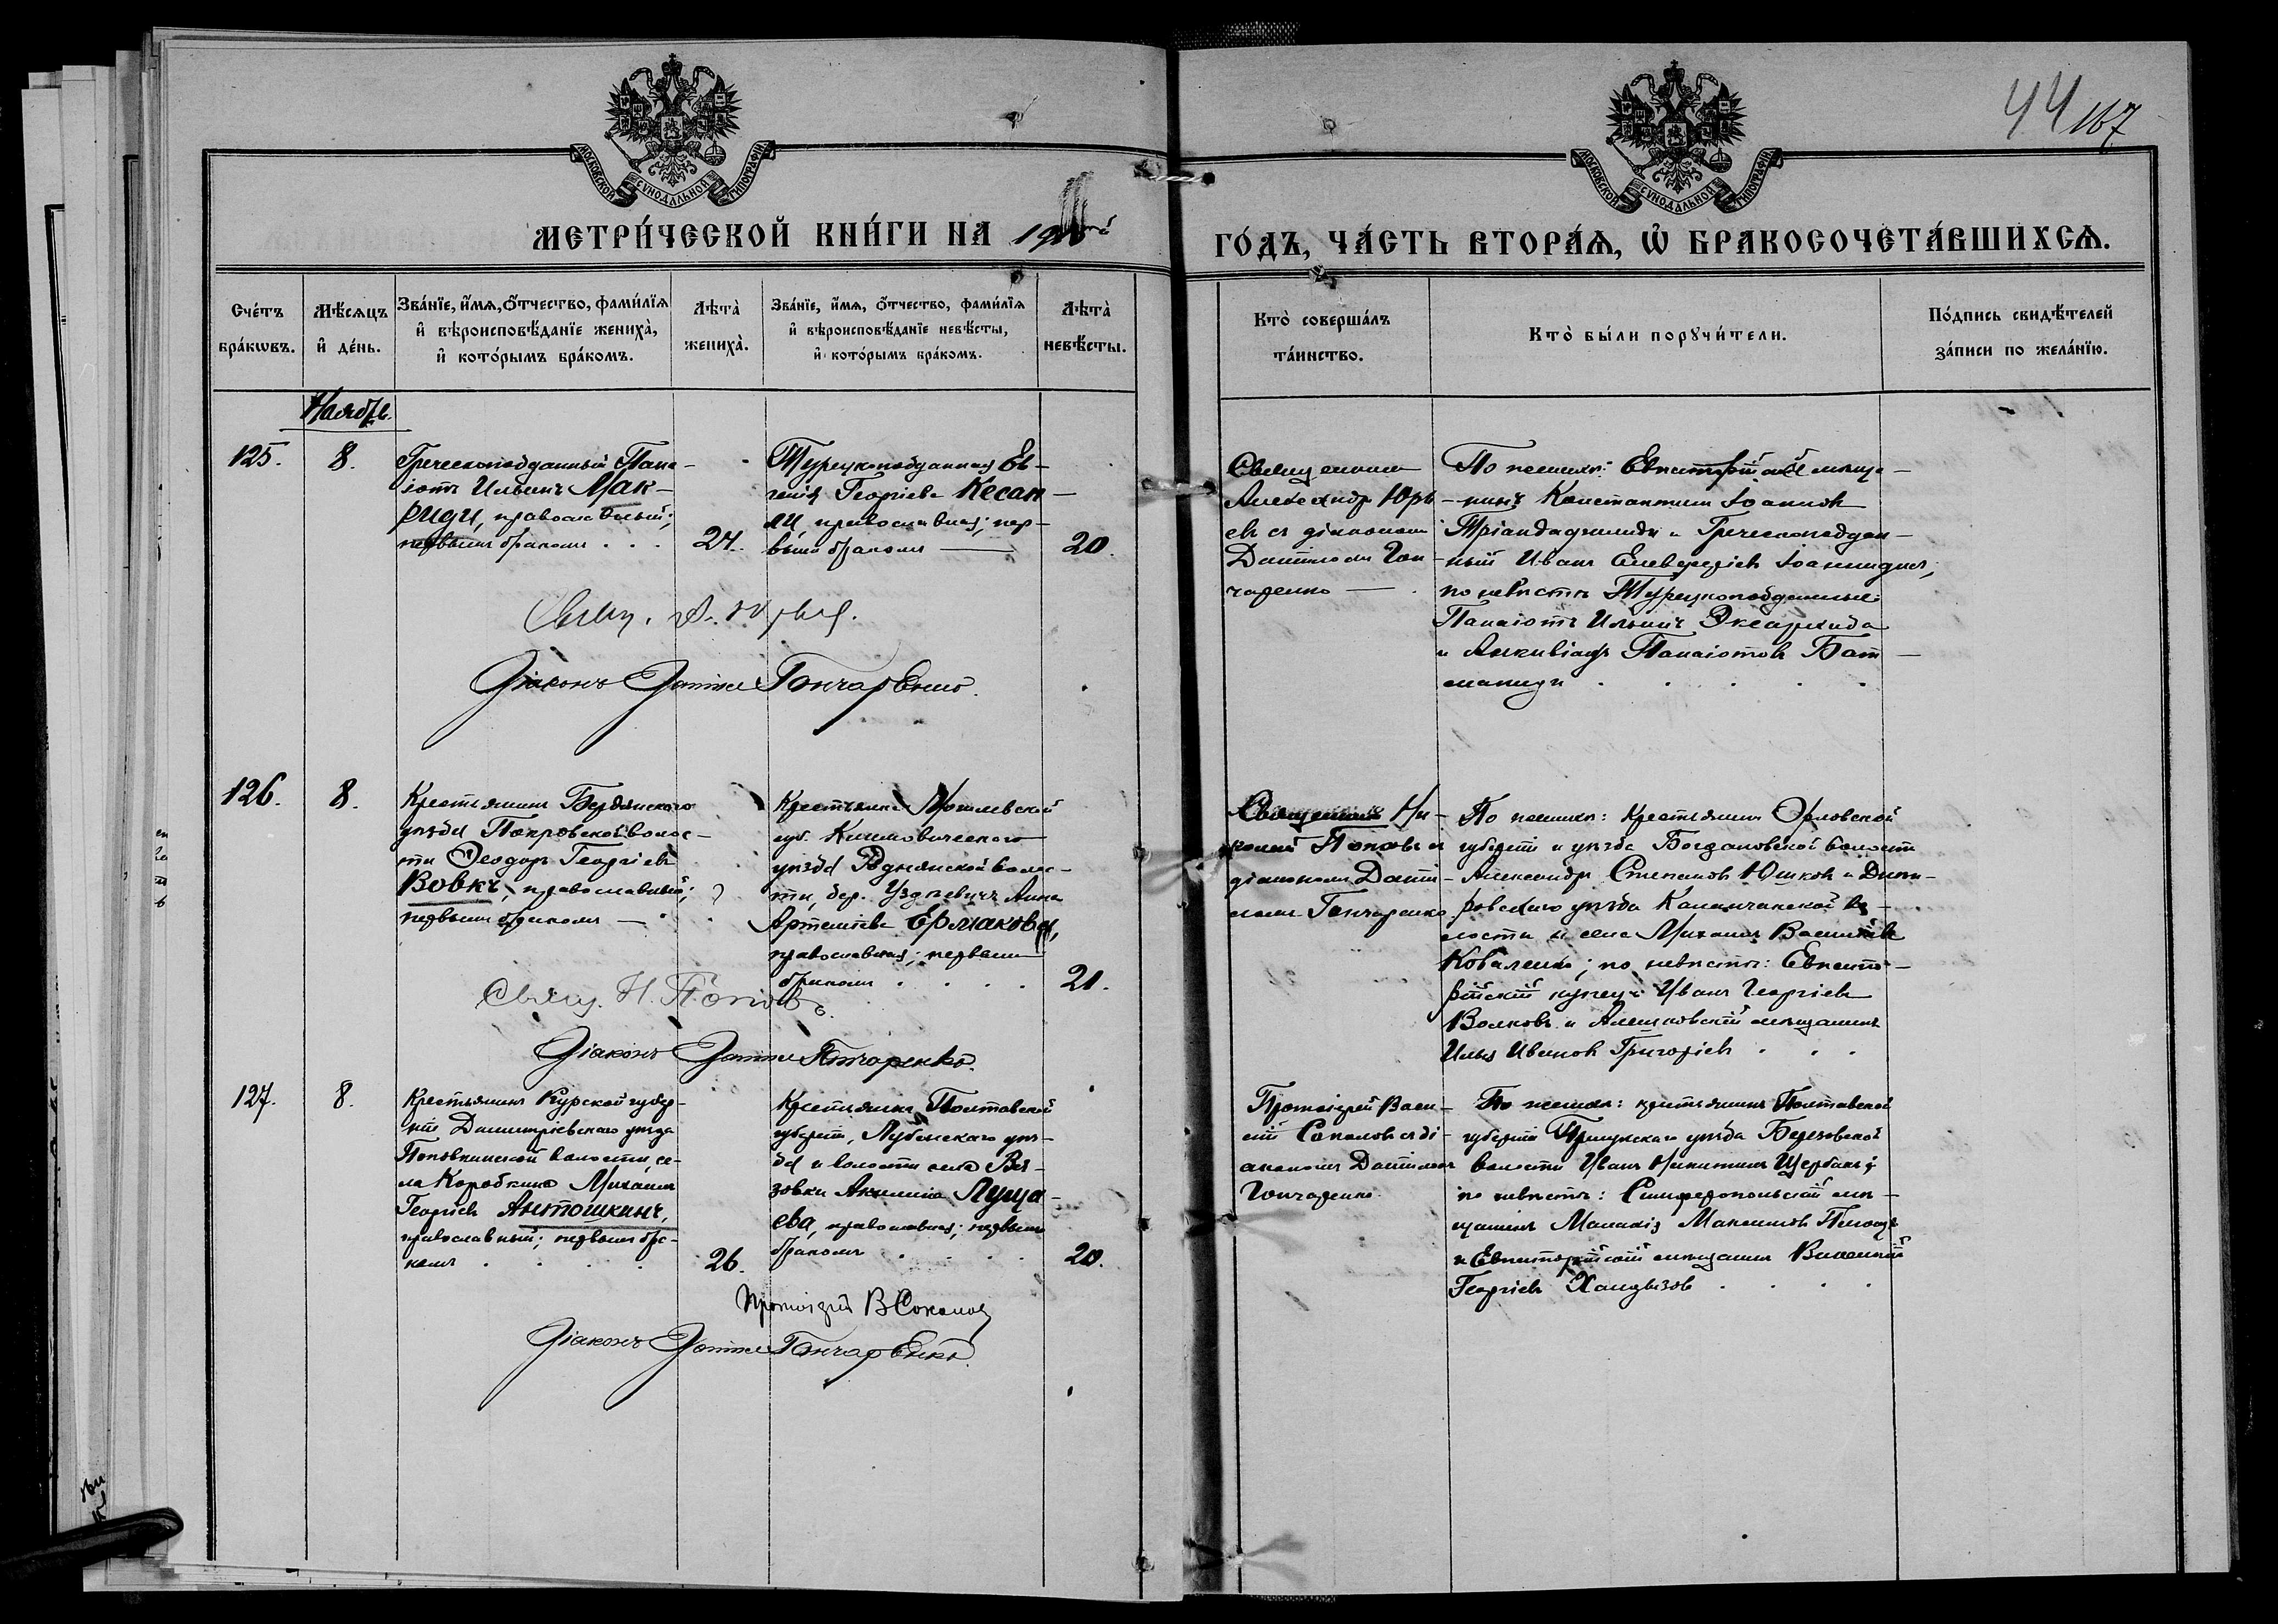 44 167
МОСКОВСКОЙ СѴНОДАЛЬНОЙ ТИПОГРАФІИ
МОСКОВСКОЙ СѴНОДАЛЬНОЙ ТИПОГРАФІИ
МЕТРИ́ЧЕСКОЙ КНИ́ГИ НА 19
ГО́ДЪ, ЧА́СТЬ ВТОРА́Ѧ, Ѡ҆ БРАКОСОЧЕТА́ВШИХСѦ.
Сче́тъ
бра́кѡвъ.
Мѣ́сѧцъ
и҆ де́нь.
Зва́нїе, и҆́мѧ, ѻ҆́тчество, фами́лїѧ
и҆ вѣроисповѣ́данїе жениха̀,
и҆ кото́рымъ бра́комъ.
Лѣта̀
жениха̀.
Зва́нїе, и҆́мѧ, ѻ҆́тчество, фами́лїѧ
и҆ вѣроисповѣ́данїе невѣ́сты,
и҆ кото́рымъ бра́комъ.
Лѣта̀
невѣ́сты.
Кто̀ соверша́лъ
та́инство.
Кто̀ бы́ли порꙋчи́тели.
По́дпись свидѣ́телей
за́писи по жела́нїю.
Ноябрь
125.
8.
Греческоподданный Пана-
іотъ Ильинъ Мак-
риди, православный;
первымъ бракомъ
24.
Турецкоподданная Ев-
генія Георгіева Кесан-
ли православная; пер-
вымъ бракомъ
20.
Священникъ
Александръ Юрь-
евъ съ діакономъ
Даніиломъ Гон-
чаренко
По женихѣ: Евпаторійскій мѣща-
нинъ Константинъ Іоанновъ
Тріандафилиди и Греческоподдан-
ный Иванъ Елевферіевъ Іоаннидисъ;
по невѣстѣ Турецкоподданные:
Панаіотъ Ильинъ Эксархида
и Алкивіадъ Панаіотовъ Бат-
маниди
Свящ. А. Юрьев.
Діаконъ Даніилъ Гончаренко.
126.
8.
Крестьянинъ Бердянскаго
уѣзда Покровской волос-
ти Ѳеодоръ Георгіевъ
Вовкъ, православный;
первымъ бракомъ
?
Крестьянка Могилевской
губ. Климовическаго
уѣзда Роднянской волос-
ти, дер. Анна
Артемьева Ермакова,
православная; первымъ
бракомъ
21.
Священникъ Ни-
колай Поповъ съ
діакономъ Даніи-
ломъ Гончаренко
По женихѣ: Крестьянинъ Орловской
губерніи и уѣзда Богдановской волости
Александръ Степановъ Юшковъ и Днѣп-
ровскаго уѣзда Каланчакской во-
лости и села Михаилъ Васильевъ
Коваленко; по невѣстѣ: Евпато-
рійскій купецъ Иванъ Георгіевъ
Волковъ и Алешковскій мѣщанинъ
Илья Ивановъ Григорьевъ
Свящ. Н. Поповъ.
Діаконъ Даніилъ Гончаренко.
127.
8.
Крестьянинъ Курской губер-
ніи Дмитріевскаго уѣзда
Поповкинской волости, се-
ла Коробкина Михаилъ
Георгіевъ Антошкинъ,
православный; первымъ бра-
комъ
26.
Крестьянка Полтавской
губерніи, Лубенскаго уѣз-
да и волости села Вя-
зовки Акилина Луща-
ева, православная; первымъ
бракомъ
20.
Протоіерей Васи-
лій Соколовъ съ ді-
акономъ Даніиломъ
Гончаренко
По женихѣ: крестьянинъ Полтавской
губерніи Прилукскаго уѣзда Березовской
волости Иванъ Никитинъ Щербакъ;
по невѣстѣ: Симферопольскій мѣ-
щанинъ Малахія Максимовъ
и Евпаторійскій мѣщанинъ Василій
Георгіевъ
Протоіерей В Соколов
Діаконъ Даніилъ Гончаренко.